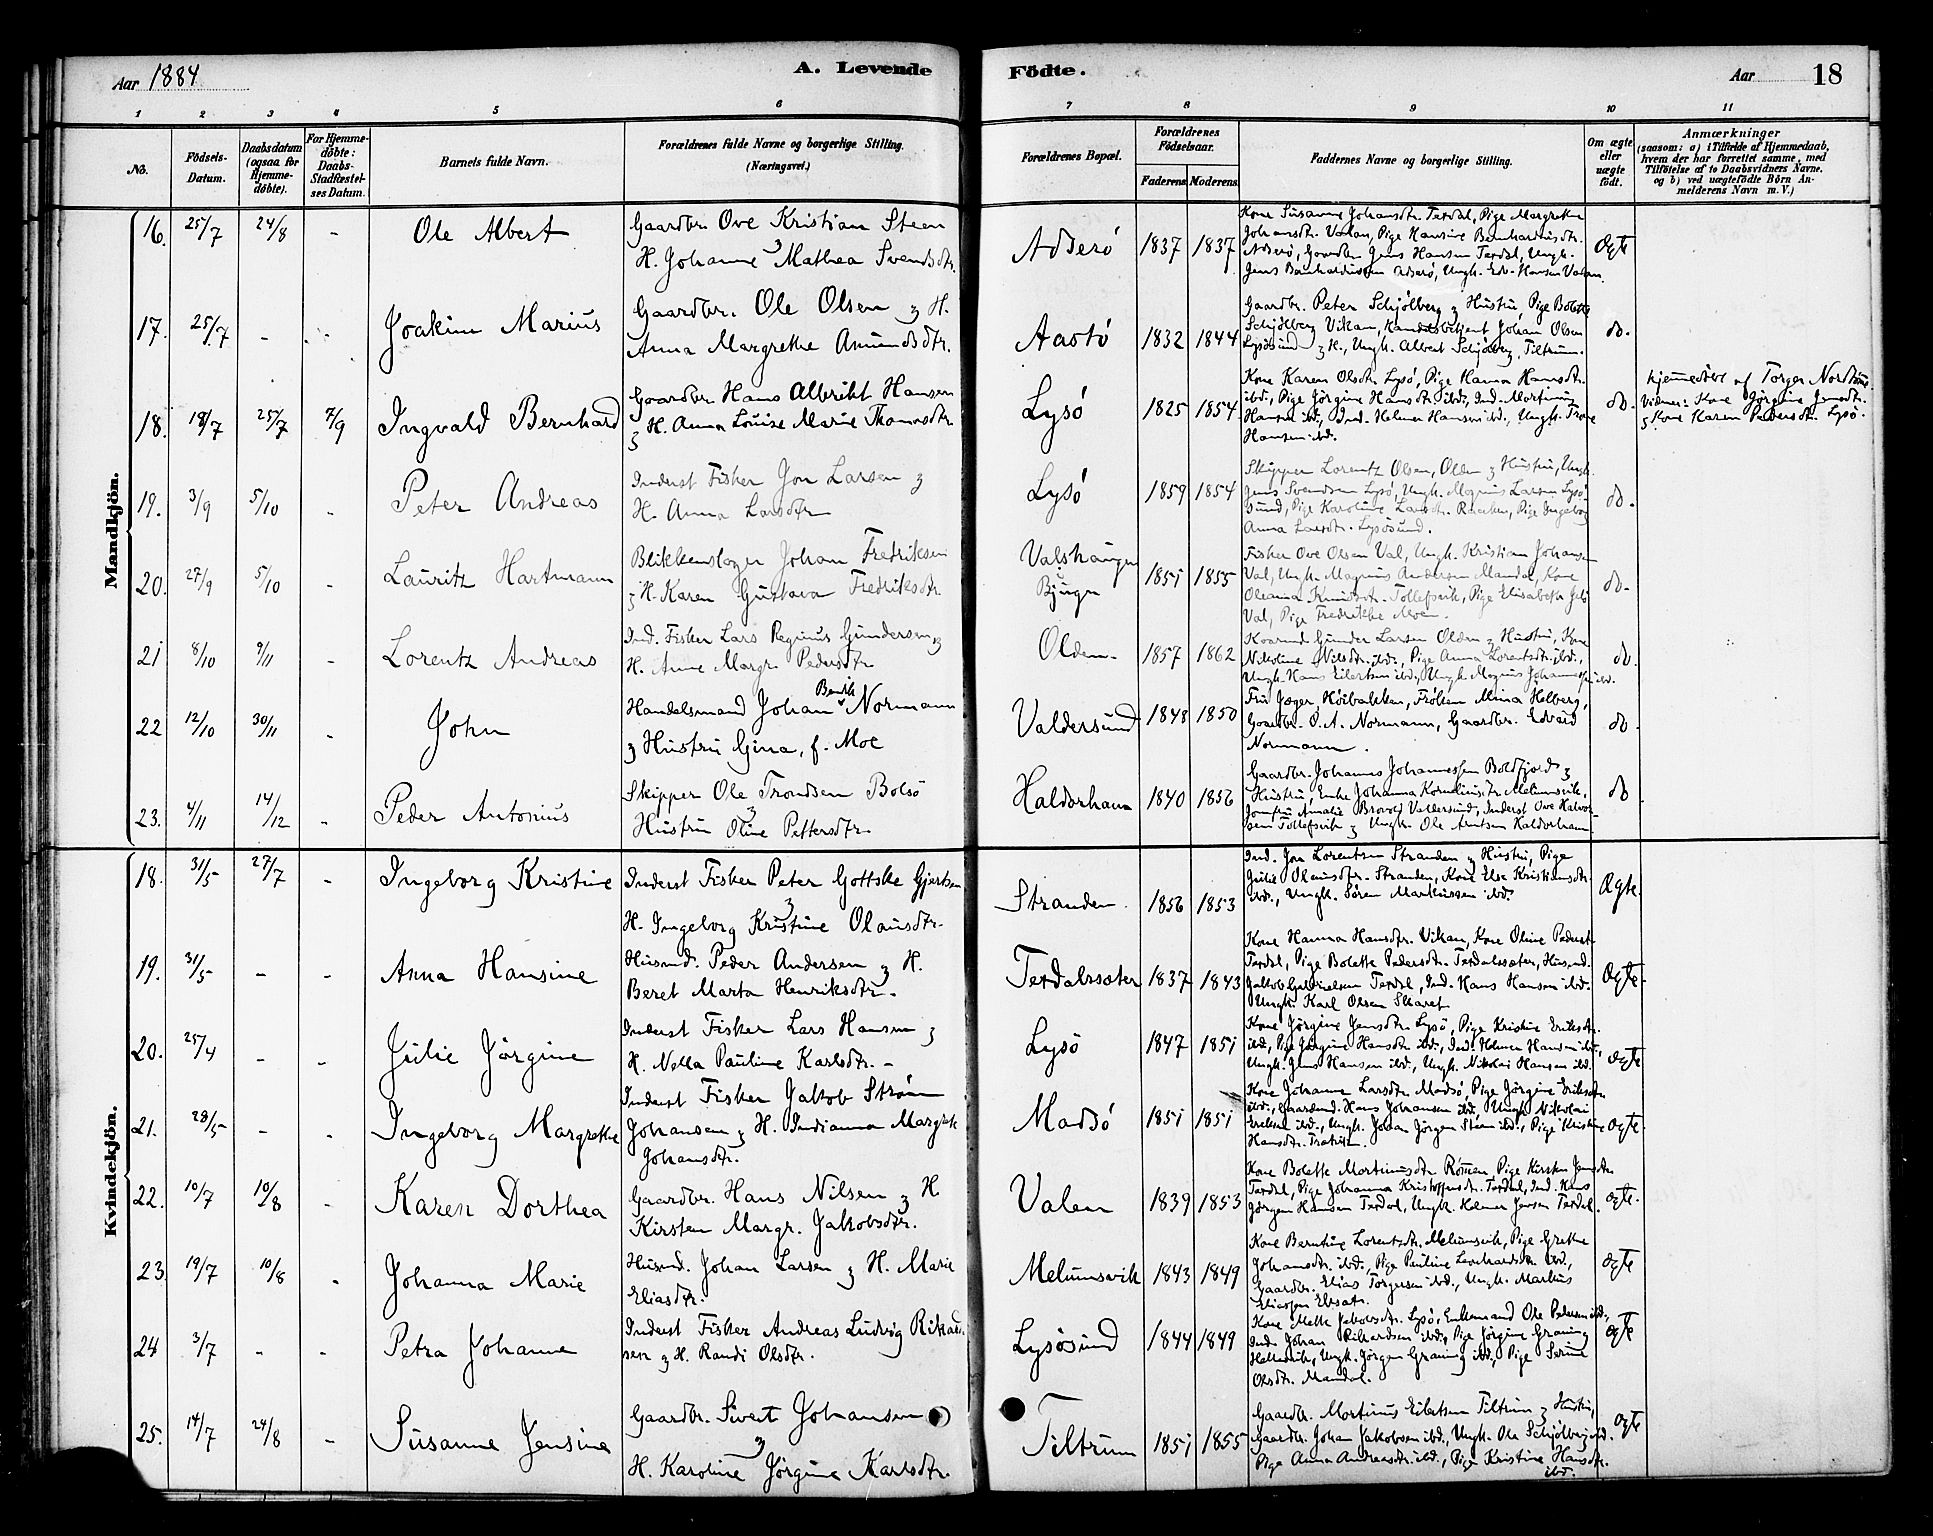 Aar 1884
A. Levende
Födte.
Aar
18
1 2 3 4 5 6 7 8 9 10 11
No.
Födsels-
Datum.
Daabsdatum
(ogsaa for
Hjemme-
döbte).
For Hjemme-
döbte:
Daabs-
Stadfæstel-
ses Datum.
Barnets fulde Navn.
Forældrenes fulde Navne og borgerlige Stilling.
(Næringsvei.)
Forældrenes Bopæl.
Forældrenes
Födselsaar.
Faderens.
Moderens.
Faddernes Navne og borgerlige Stilling.
Om ægte
eller
uægte
födt.
Anmærkninger
(saasom: a) i Tilfælde af Hjemmedaab,
hvem der har forrettet samme, med
Tilföielse af to Daabsvidners Navne,
og b) ved uægtefödte Börn An-
melderens Navn m. V.)
Mandkjön.
16. 25/7 24/8 - Ole Albert
Gaardbr. Ove Kristian Steen
& H. Johanne Mathea Svendsdtr.
Adserö 1837 1837
Kone Susanne Johansdtr. Terdal, Pige Margrethe
Johansdtr. Valan, Pige Hansine Bernhardusdtr.
Adserö, Gaardbr. Jens Hansen Terdal, Ungk.
Jens Bernhardussen Adserö, Ungk. Edv. Hansen Valan.
Ægte
17. 25/7 - Joakim Marius
Gaardbr. Ole Olsen & H.
Anna Margrethe Amundsdtr.
Aastö 1832 1844
Gaardbr. Peter Schjölberg & Hustru, Pige Bolette
Schjölberg Vikan, Handelsbetjent Johan Olsen
Lysösund & H., Ungk. Albert Schjölberg, Tiltrum.
do.
18. 18/7 25/7 7/9 Ingvald Bernhard
Gaardbr. Hans Albrikt Hansen
& H. Anna Louise Marie Thomasdtr.
Lysö 1825 1854
Kone Karen Olsdtr. Lysö, Pige Hanna Hansdtr.
ibd., Pige Jörgine Hansdtr. ibd., Ind. Mortinus
Hansen ibd., Ind. Helmer Hansen ibd., Ungk.
Hansen ibd.
do.
hjemmedöbt af Torger
Vidner: Kone Jörgine Jensdtr.
& Kone Karen Pedersdtr. Lysö.
19. 3/9 5/10 - Peter Andreas
Inderst Fisker Jon Larsen &
H. Anna Larsdtr.
Lysö 1859 1854
Skipper Lorentz Olsen, Olden & Hustru, Ungk.
Jens Svendsen Lysö, Ungk. Magnus Larsen Lysö-
sund, Pige Karoline Larsdtr., Pige Ingeborg
Anna Larsdtr. Lysösund.
do.
20. 27/9 5/10 Lauritz Hartmann
Blikkenslager Johan Fredriksen
& H. Karen Gustava Fredriksdtr.
Valshaugen
Bjugn 1851 1855
Fisker Ove Olsen Val, Ungk. Kristian Johansen
Val, Ungk. Magnus Andersen Mandal, Kone
Oleanna Knudsdtr. Tollefsvik, Pige Elisabeth
Val, Pige Fredrikke Moen.
do.
21 8/10 9/11 - Lorentz Andreas
Ind. Fisker Lars Reginus Gundersen &
H. Anne Margr. Pedersdtr.
Olden 1857 1862
Kaarmd. Gunder Larsen Olden & Hustru, Kone
Nikoline Nilsdtr. ibd., Pige Anna Lorentsdtr. ibd.,
Ungk. Hans Eilertsen ibd., Ungk. Magnus Johannessen ibd.
do.
22 12/10 30/11 - John
Handelsmand Johan Bernth. Normann
& Hustru Gina, f. Moe
Valdersund 1848 1850
Fru Jæger, Höibakken, Fröken Mina Holberg,
Gaardbr. O. A. Normann, Gaardbr. Edvard
Normann.
do.
23. 4/11 14/12 - Peder Antonius
Skipper Ole Trondsen Bolsö
& Hustru Oline Pettersdtr.
Haldorhavn 1840 1856
Gaardbr. Johannes Johannessen Boldfjord &
Hustru, Enke Johanna Korneliusdtr. Melumsvik,
Jomfru Amalie Brovold Valdersund, Inderst Ove Halvor-
sen Tollefsvik & Ungk. Ole Arntsen Haldorhavn
do.
Kvindekjön.
18. 31/5 27/7 - Ingeborg Kristine
Inderst Fisker Peter Gottske Gjertsen
& H. Ingeborg Kristine Olausdtr.
Stranden 1856 1853
Ind. Jon Lorentsen Stranden & Hustru, Pige
Julie Olausdtr. Stranden, Kone Else Kristiansdtr.
ibd., Ungk. Sören Markussen ibd.
Ægte.
19. 31/5 - - Anna Hansine
Husmd. Peder Andersen & H.
Beret Marta Henriksdtr.
Terdalssæter 1837 1843
Kone Hanna Hansdtr. Vikan, Kone Oline Pedersdtr.
Terdal, Pige Bolette Pedersdtr. Terdalssæter, Husmd.
Jakob Gabrielsen Terdal, Ind. Hans Hansen ibd.
Ungk. Karl Olsen Skaret
Ægte.
20. 25/4 - - Julie Jörgine
Inderst Fisker Lars Hansen &
H. Nella Pauline Karlsdtr.
Lysö 1847 1851
Kone Jörgine Jensdtr. Lysö, Pige Kristine Eriksdtr.
ibd., Pige Jörgine Hansdtr. ibd., Ind. Helmer Hansen ibd.,
Ungk. Jens Hansen ibd., Ungk. Nikolai Hansen ibd.
Ægte
21. 28/5 - - Ingeborg Margrethe
Inderst Fisker Jakob Ström
Johansen & H. Indianna Margrete
Johansdtr.
Madsö 1851 1851
Kone Johanne Larsdtr. Madsö, Pige Jörgine Eriksdtr.
ibd., Gaardmd. Hans Johansen ibd., Ungk. Nikolai
Eriksen ibd., Ungk. Johan Jörgen Steen ibd., Pige Kristine
Hansdtr.
Ægte.
22. 10/7 10/8 - Karen Dorthea
Gaardbr. Hans Nilsen & H.
Kirsten Margr. Jakobsdtr.
Valen 1839 1853
Kone Bolette Mortinusdtr. Römen, Pige Kirsten Jensdtr.
Terdal, Pige Johanna Kristoffersdtr. Terdal, Ind. Hans
Jörgen Hansen Terdal, Ungk. Helmer Jensen Terdal.
Ægte.
23. 19/7 10/8 - Johanna Marie
Husmd. Johan Larsen & H. Marie
Eliasdtr.
Melumsvik 1843 1849
Kone Berntine Lorentzdtr. Melumsvik, Pige Grethe
Johansdtr. ibd., Pige Pauline Leonhardsdtr. ibd.,
Gaardbr. Elias Torgersen ibd., Ungk. Markus
Eliassen
Ægte
24 3/7 - - Petra Johanne
Inderst Fisker Andreas Ludvig Rikard-
sen & H. Randi Olsdtr.
Lysösund 1844 1849
Kone Mette Jakobsdtr. Lysö, Enkemand Ole Pedersen ibd.,
Ind. Johan Rikhardsen ibd., Pige Jörgine Graning
Hellesvik, Ungk. Jörgen Graning ibd., Pige Serine
Olsdtr. Mandal.
Ægte
25. 14/7 24/8 - Susanne Jensine
Gaardbr. Sivert Johansen
& H. Karoline Jörgine Karlsdtr.
Tiltrum 1851 1855
Gaardbr. Mortinus Eilertsen Tiltrum & Hustru,
Gaardbr. Johan Jakobsen ibd., Ungk. Ole Schjölberg ibd.
Pige Anna Andreasdtr. ibd., Pige Kristine Hansdtr.
ibd.
Ægte